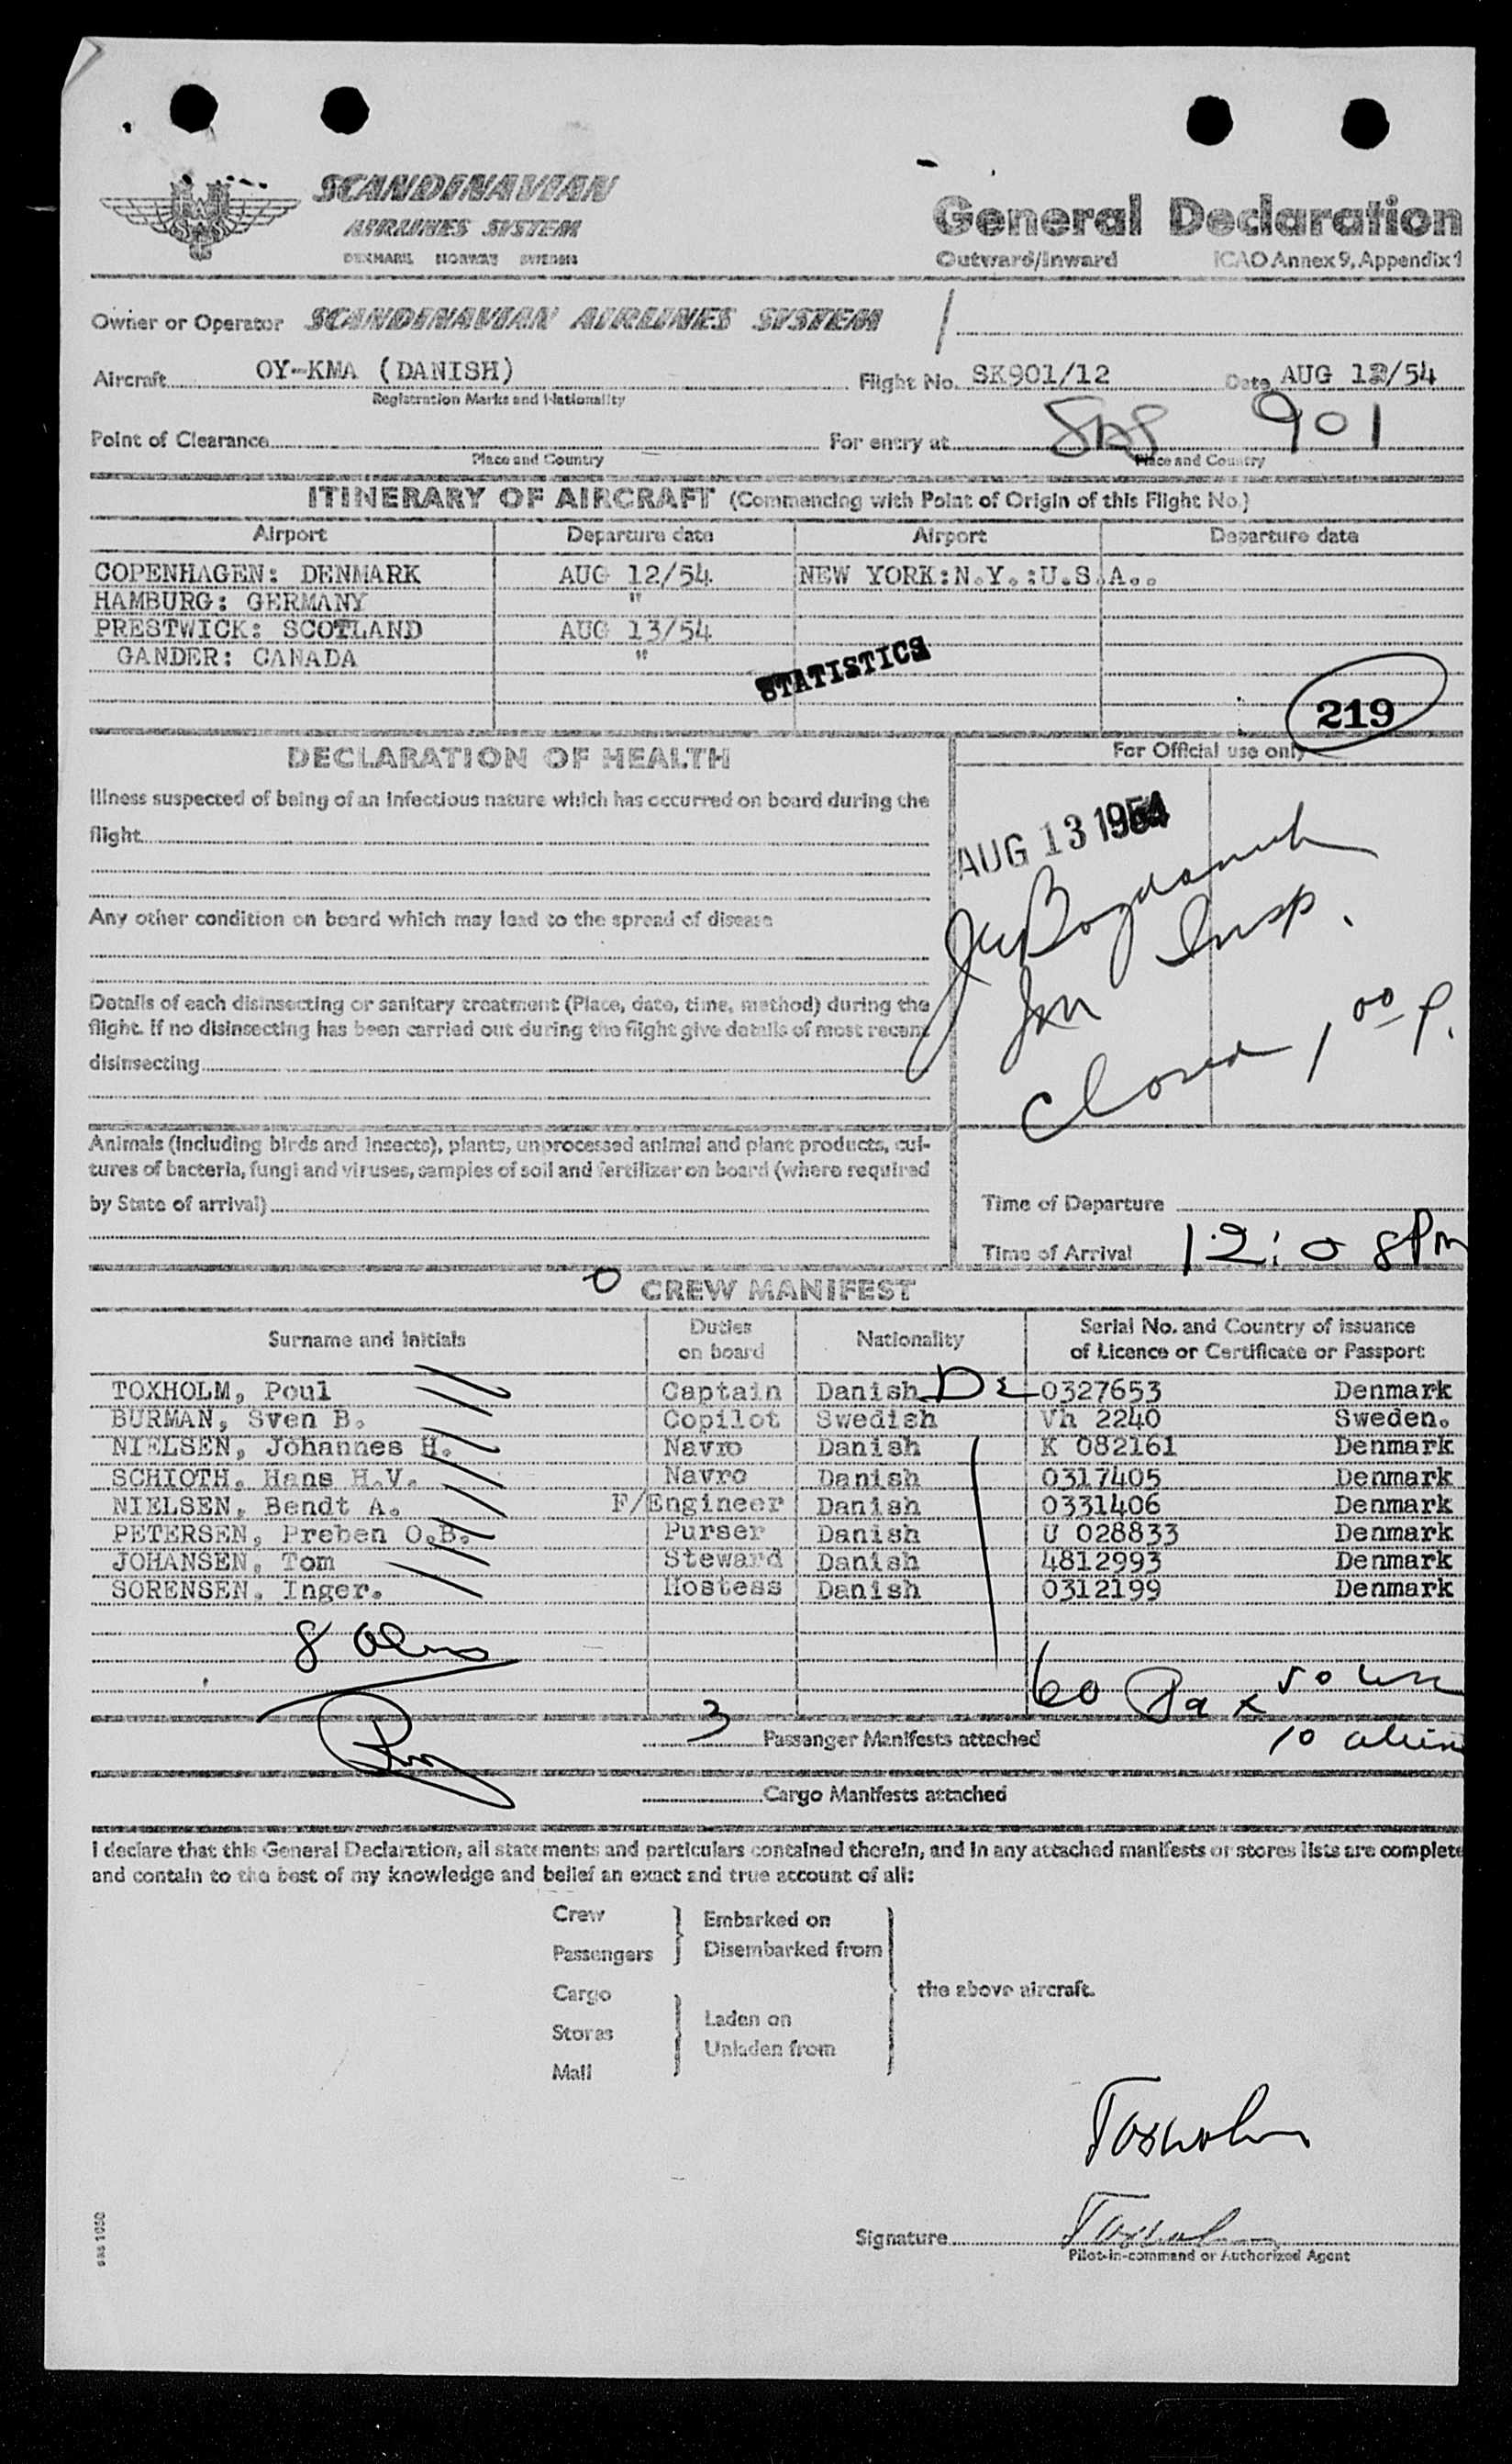 SCANDINAVIAN
AIRLINES SYSTEM
DENMARK NORWAY SWEDEN
General Declaration
Outward/Inward ICAO Annex 9, Appendix 1
Owner or Operator SCANDINAVIAN AIRLINES SYSTEM
Aircraft OY-KMA (DANISH) Flight No. SK901/12 Date AUG 12/54
Registration Marks and Nationality
Point of Clearance For entry at SAS 901
Place and Country Place and Country
ITINERARY OF AIRCRAFT (Commencing with Point of Origin of this Flight No.)
Airport Departure date Airport Departure date
COPENHAGEN: DENMARK AUG 12/54 NEW YORK:N.Y.:U.S.A..
HAMBURG: GERMANY "
PRESTWICK: SCOTLAND AUG 13/54
GANDER: CANADA "
STATISTICS
219
DECLARATION OF HEALTH
For Official use only
Illness suspected of being of an infectious nature which has occurred on board during the
flight
AUG 13 1954
Any other condition on board which may lead to the spread of disease
Insp.
Details of each disinsecting or sanitary treatment (Place, date, time, method) during the
flight. If no disinsecting has been carried out during the flight give details of most recent
disinsecting
Closed 1,00 P.
Animals (including birds and insects), plants, unprocessed animal and plant products, cul-
tures of bacteria, fungi and viruses, samples of soil and fertilizer on board (where required
by State of arrival)
Time of Departure
Time of Arrival 12:08PM
0 CREW MANIFEST
Surname and Initials Duties on board Nationality Serial No. and Country of issuance
of Licence or Certificate or Passport
TOXHOLM, Poul Captain Danish 0327653 Denmark
BURMAN, Sven B. Copilot Swedish Vh 2240 Sweden.
NIELSEN, Johannes H. Navro Danish K 082161 Denmark
SCHIOTH. Hans H.V. Navro Danish 0317405 Denmark
NIELSEN, Bendt A. F/Engineer Danish 0331406 Denmark
PETERSEN, Preben O.B. Purser Danish U 028833 Denmark
JOHANSEN, Tom Steward Danish 4812993 Denmark
SORENSEN. Inger. Hostess Danish 0312199 Denmark
8
60 Pax 50
3 Passenger Manifests attached 10
Cargo Manifests attached
I declare that this General Declaration, all statements and particulars contained therein, and in any attached manifests or stores lists are complete
and contain to the best of my knowledge and belief an exact and true account of all:
Crew
Passengers
Embarked on
Disembarked from
Cargo
Stores
Mail
Laden on
Unladen from
the above aircraft.
Toxholm
Signature Toxholm
Pilot-in-command or Authorized Agent
sas 1050